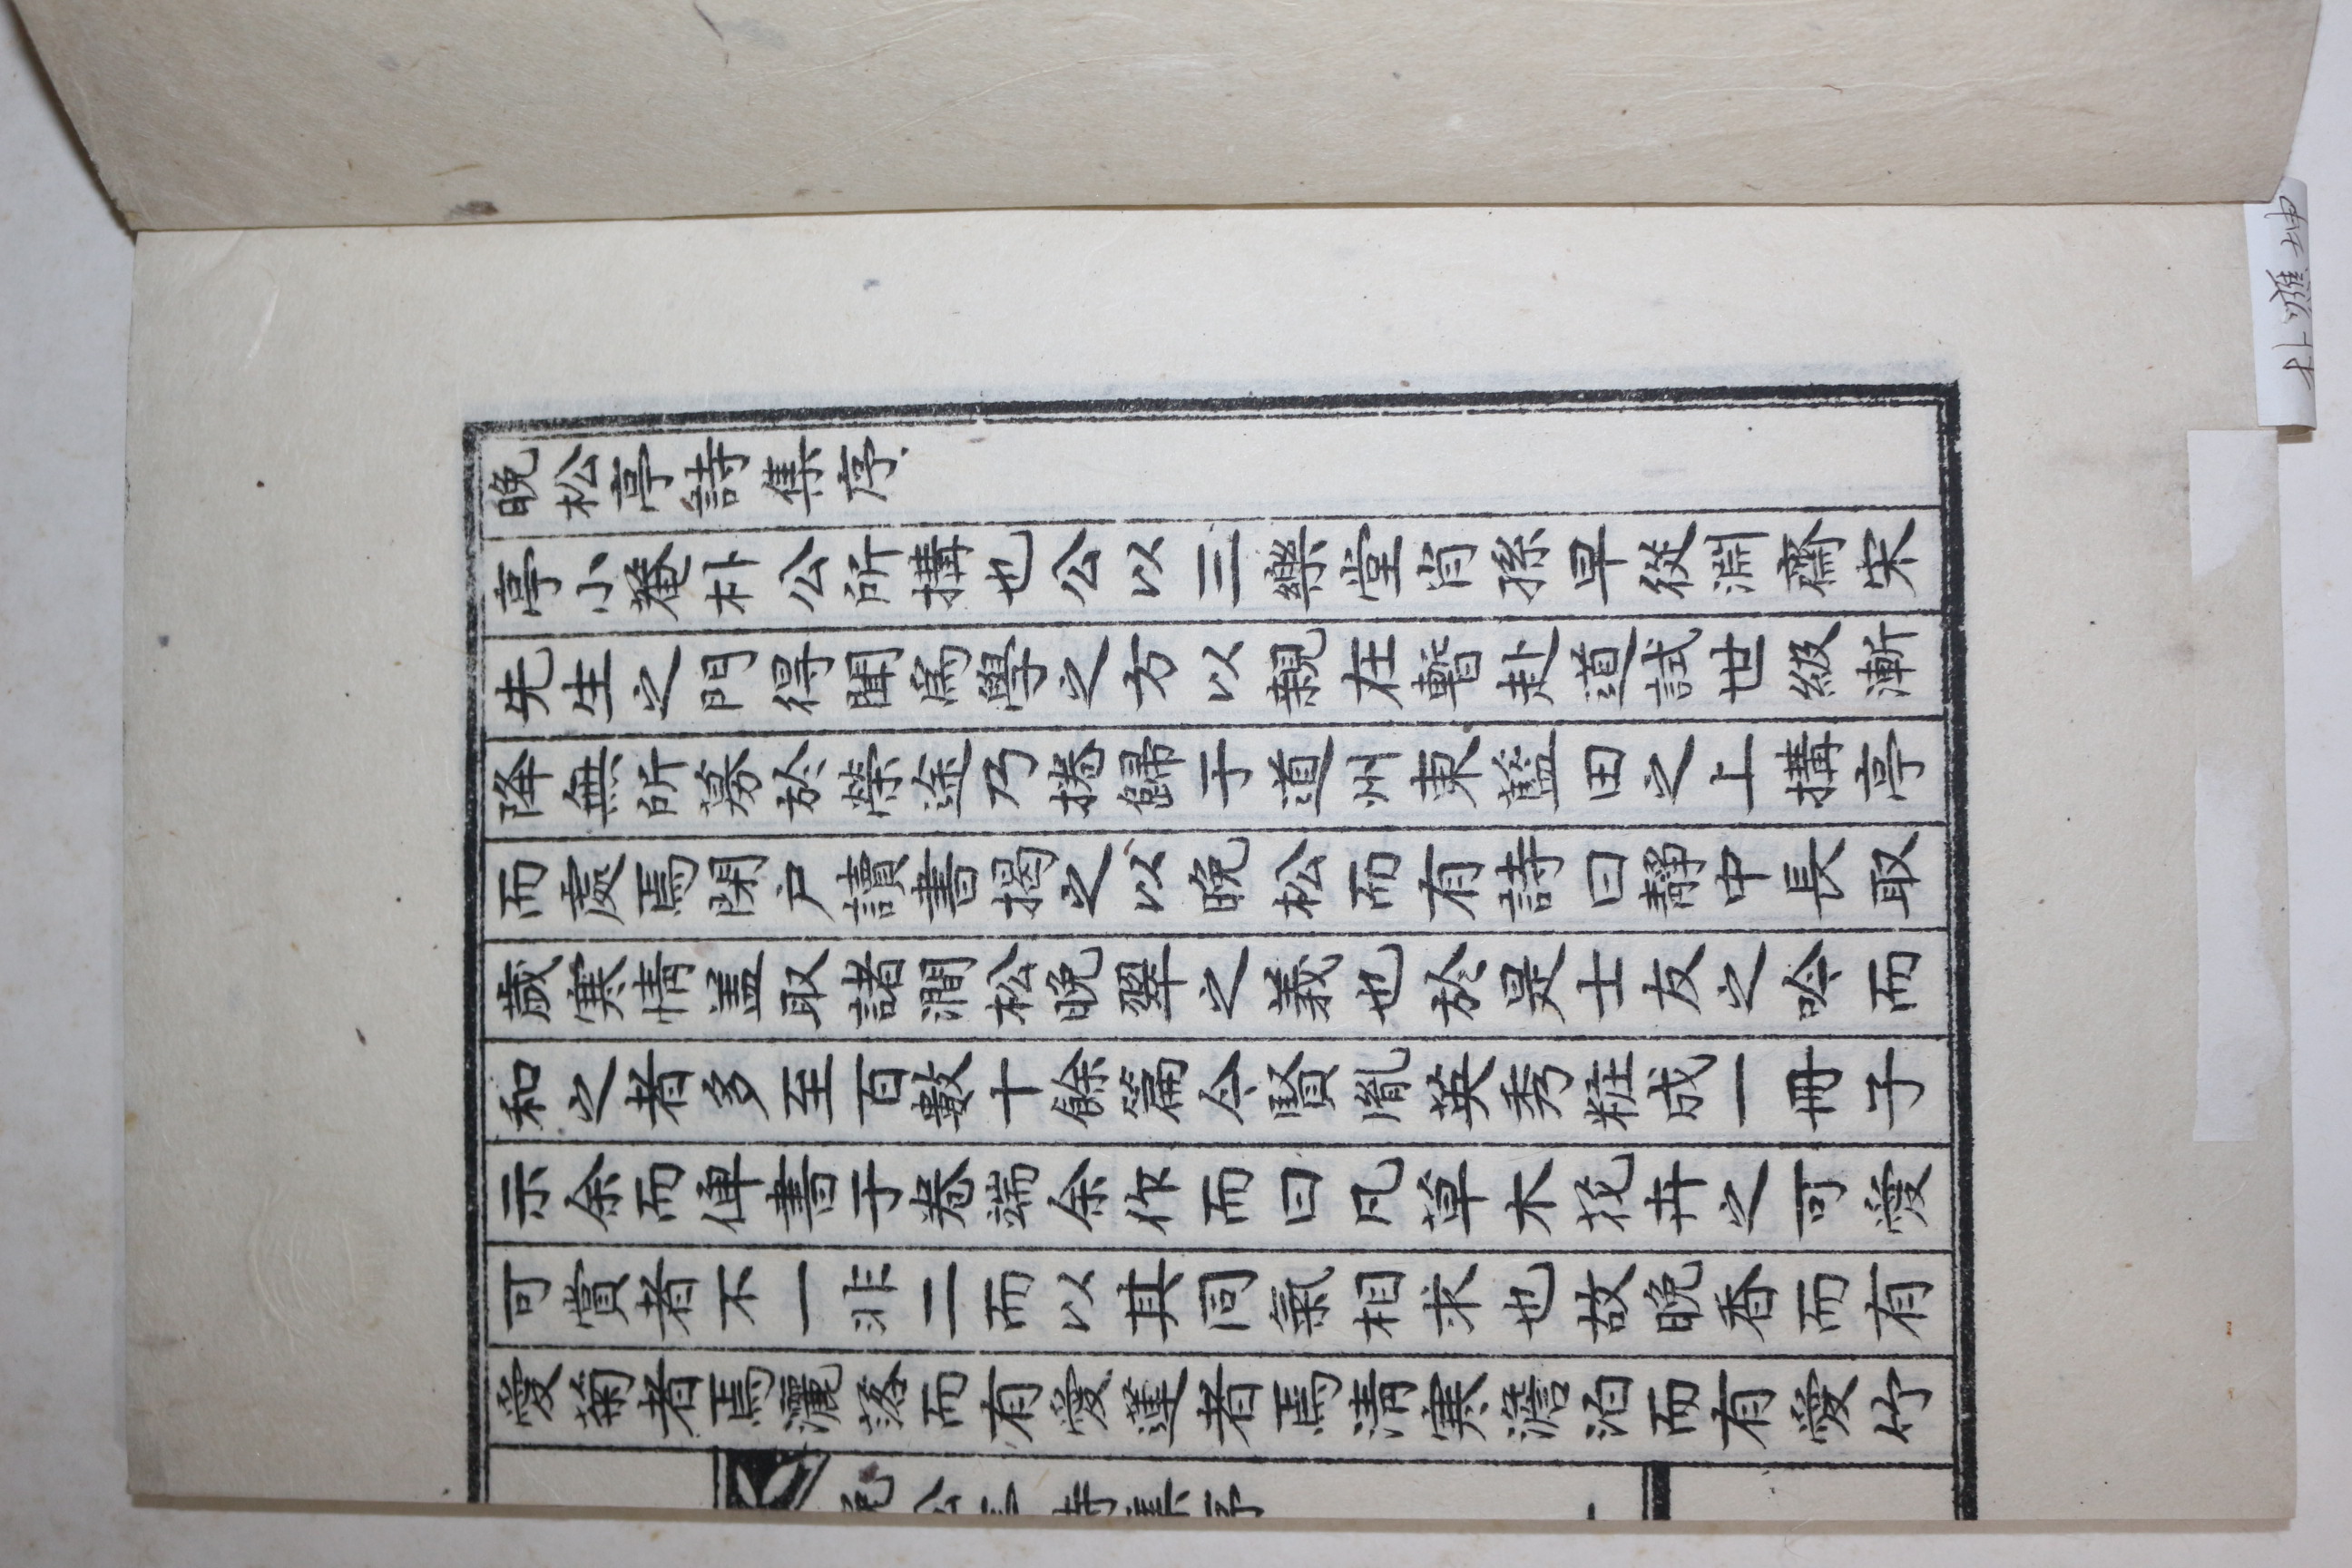 晩松亭詩集序
亭小菴朴公所搆也公以三樂堂肖孫早從淵齋宋
先生之門得聞爲學之方以親在暫赴道試世級漸
降無所募於榮途乃捲歸于道州東藍田之上搆亭
而處焉閉户讀書揭之以晩松而有詩曰靜中長取
歲寒情盖取諸澗松晩翠之義也於是士友之吟而
和之者多至百數十餘篇今賢胤英秀粧成一冊子
示余而俾書于卷端余作而曰凡草木花卉之可愛
可賞者不一非二而以其同氣相求也故晩香而有
愛菊者焉灑落而有愛蓮者焉淸寒澹泊而有愛竹
晩松亭詩集序
一
朴 坤